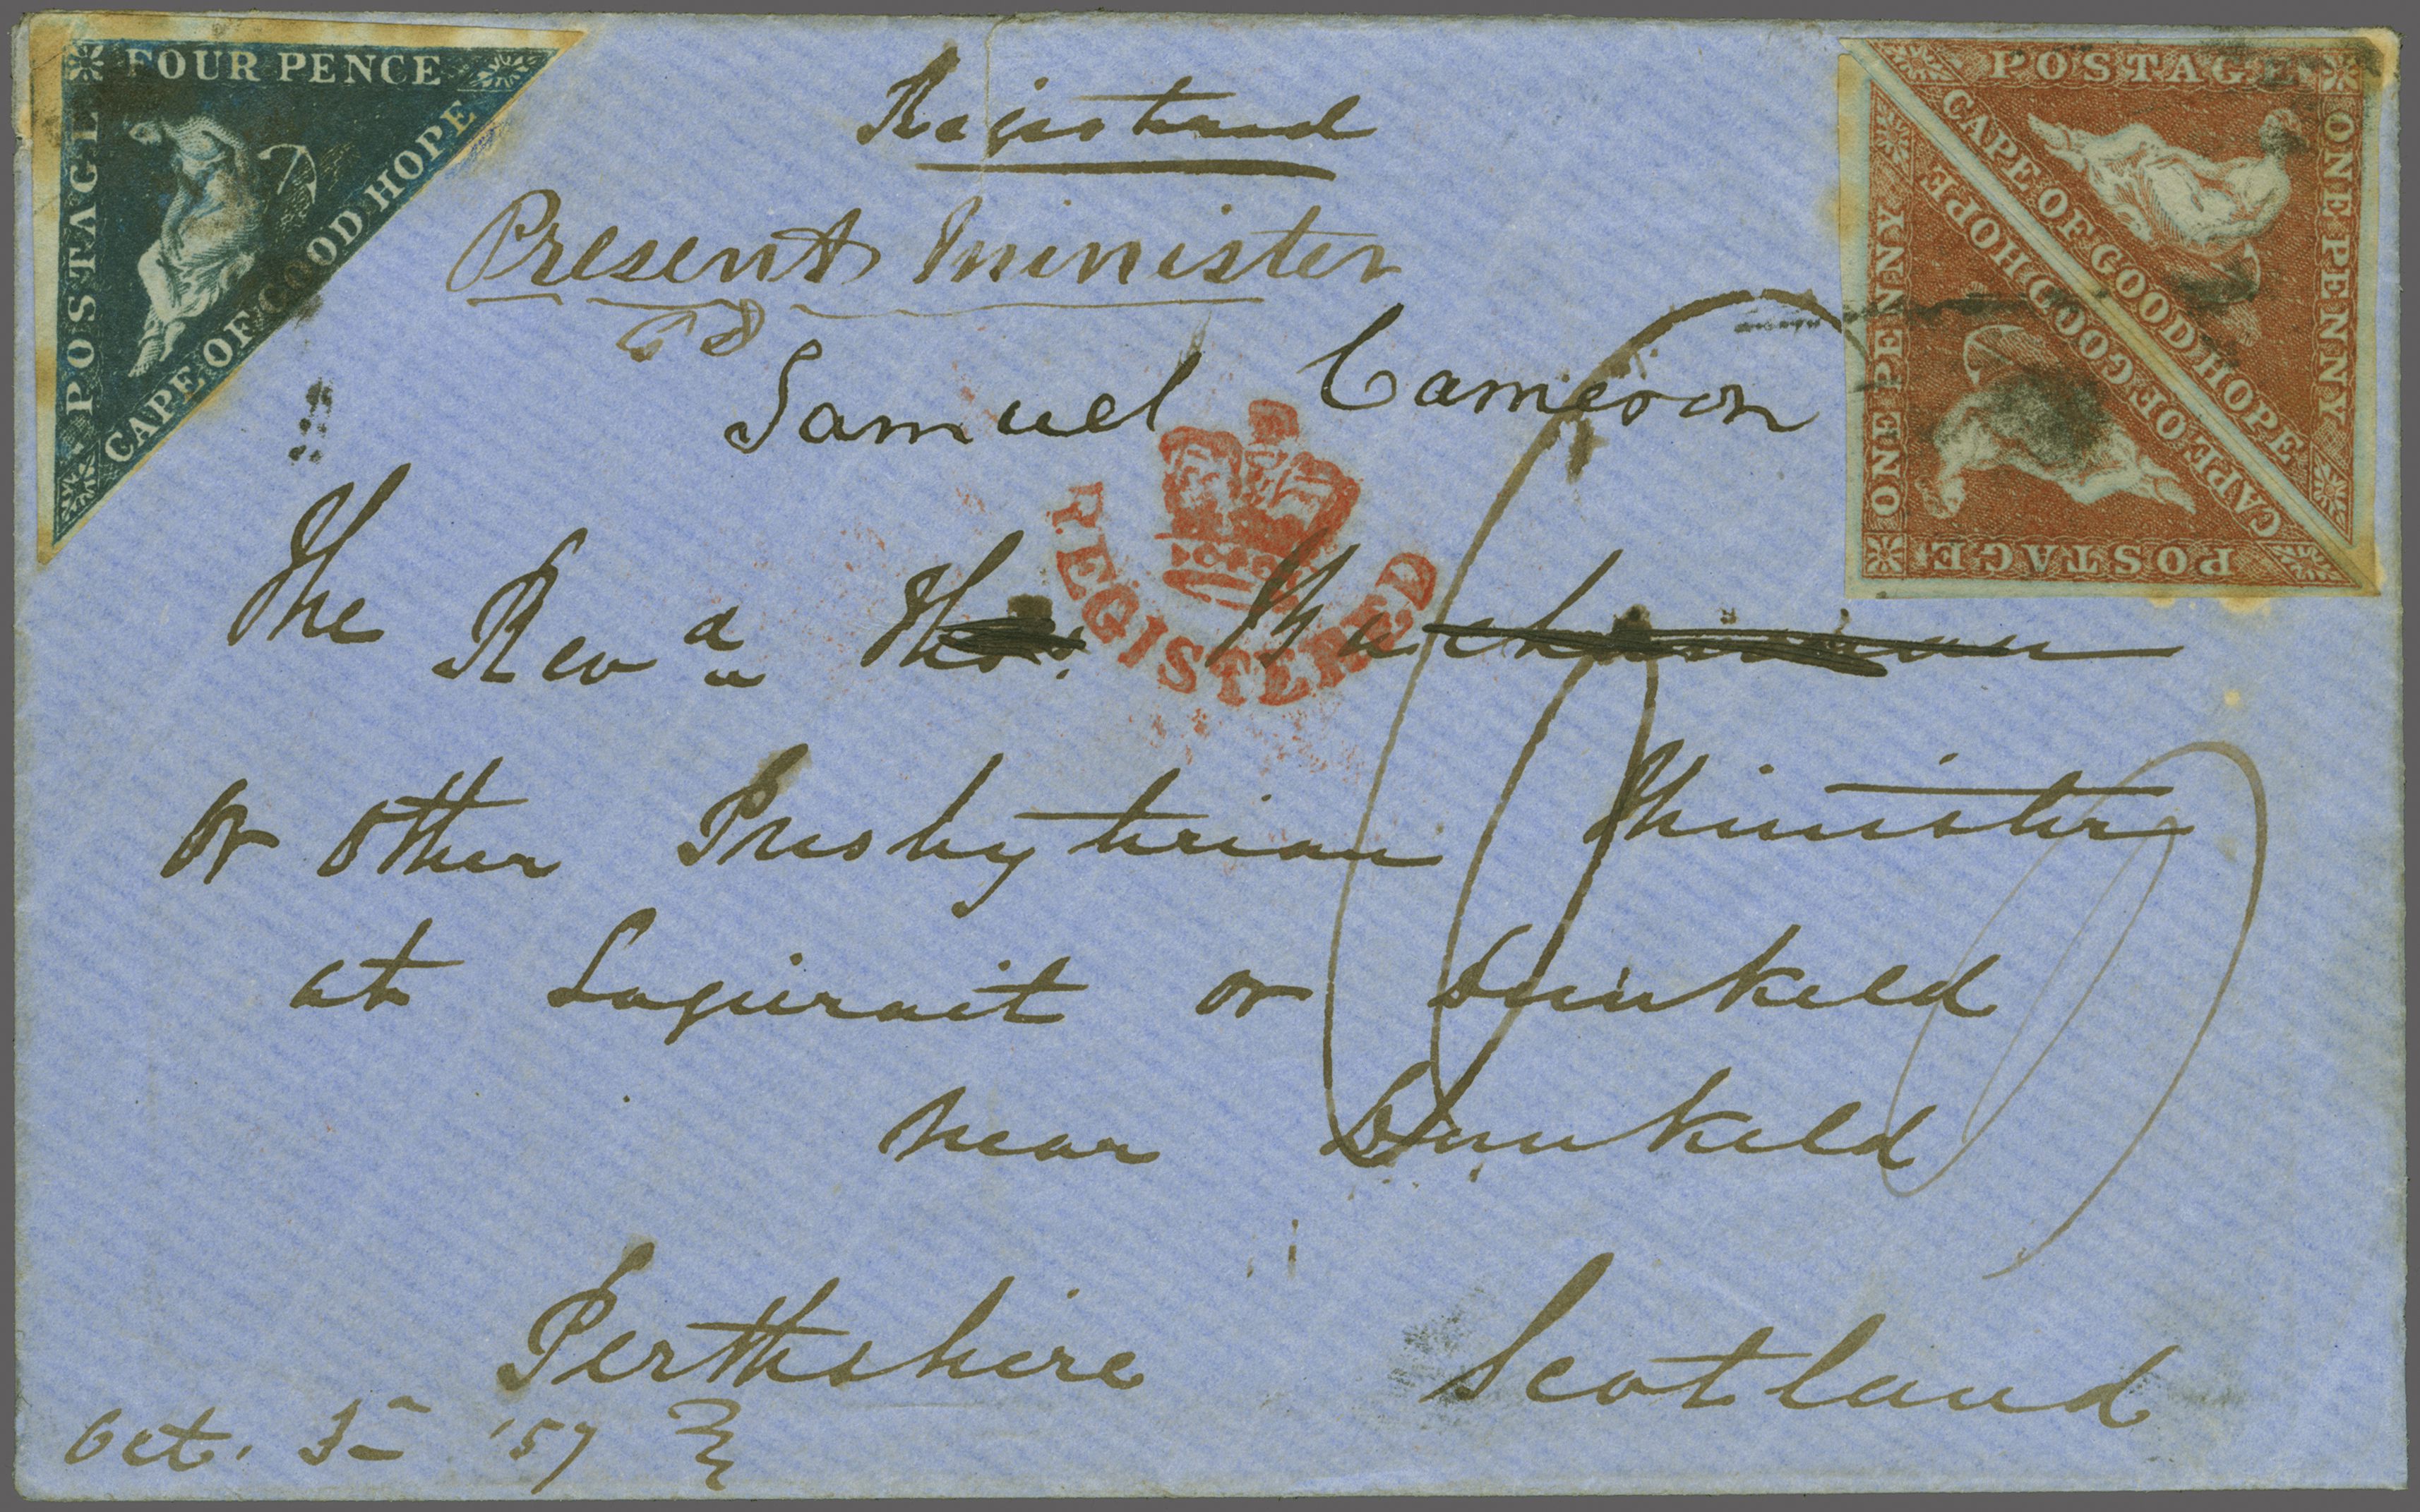 FOUR PENCE
POSTAGE
CAPE OF GOOD HOPE
POSTAGE
ONE PENNY
CAPE OF GOOD HOPE
ONE PENNY
POSTAGE
CAPE OF GOOD HOPE
Registered
Present Minister
Samuel Cameron
REGISTERED
The Revd Thos.
or other Presbyterian Minister
at Logierait or Dunkeld
near Dunkeld
Perthshire Scotland
Oct. 3 '57